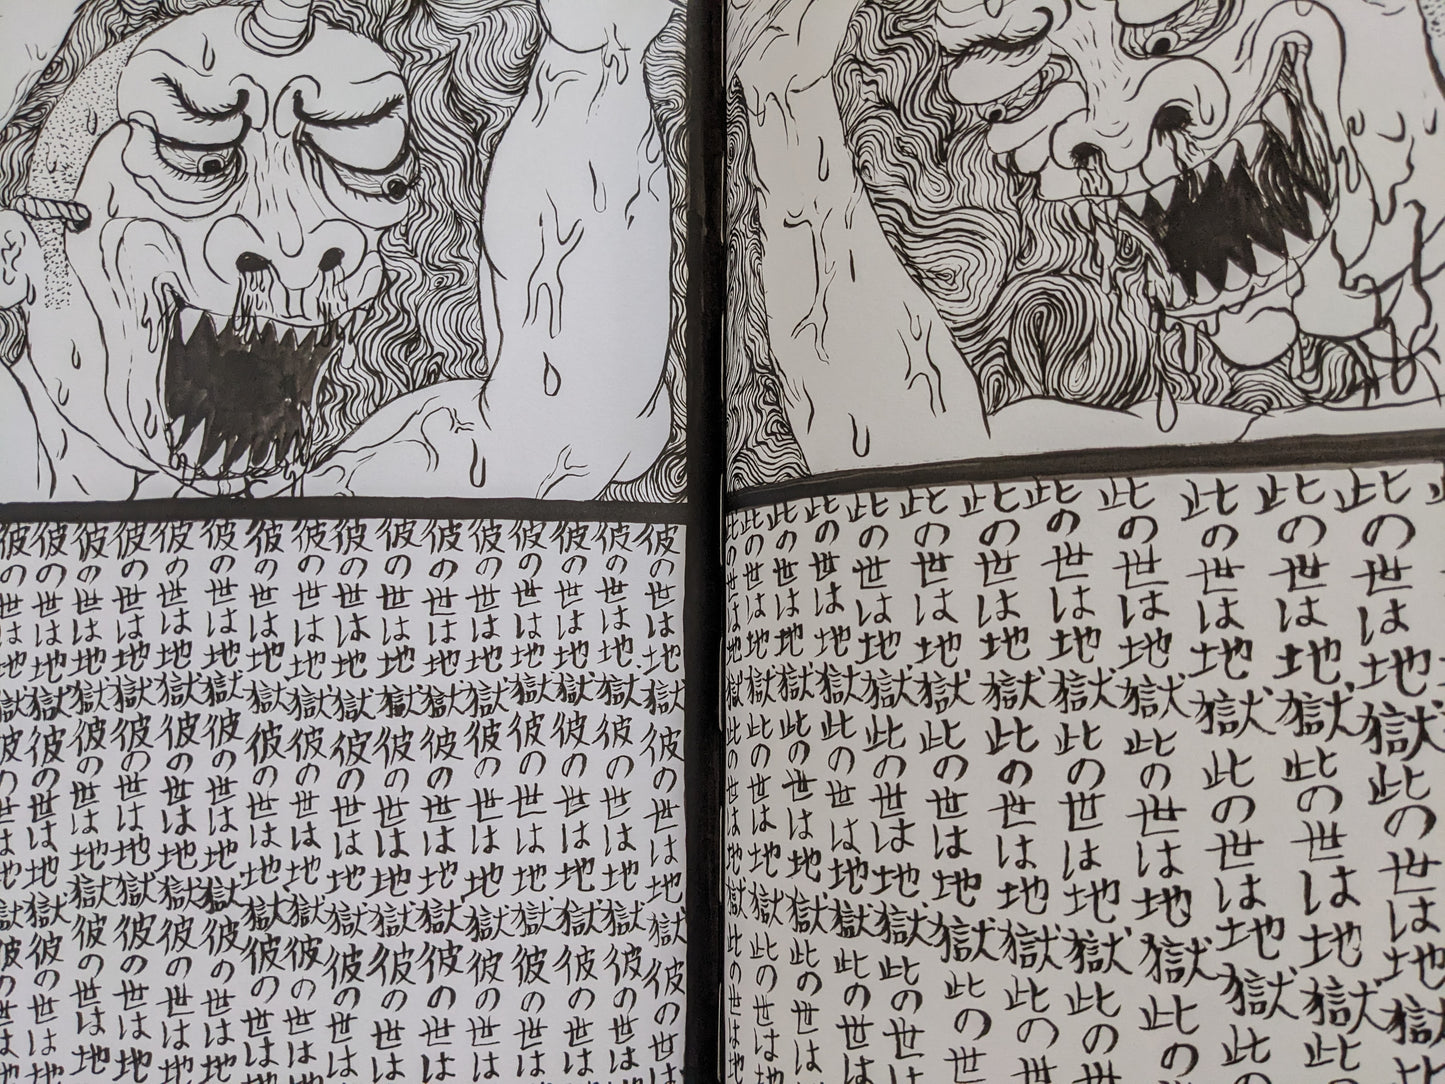 此の世は地獄此の世は地獄
此の世は地獄此の世は地獄此
此の世は地獄此の世は地獄此
此の世は地獄此の世は地獄此の
此の世は地獄此の世は地獄此の世
此の世は地獄此の世は地獄此の世
此の世は地獄此の世は地獄此の世
此の世は地獄此の世は地獄此の世は
此の世は地獄此の世は地獄此の世は
此の世は地獄此の世は地獄此の世は
此の世は地獄此の世は地獄此の世は地
此の世は地獄此の世は地獄此の世は地
彼の世は地獄彼の世は地獄彼の世は
彼の世は地獄彼の世は地獄彼の世は
彼の世は地獄彼の世は地獄彼の世は
彼の世は地獄彼の世は地獄彼の世は
彼の世は地獄彼の世は地獄彼の世は
彼の世は地獄彼の世は地獄彼の世は
彼の世は地獄彼の世は地獄彼の世は
彼の世は地獄彼の世は地獄彼の世は
彼の世は地獄彼の世は地獄彼の世は地
彼の世は地獄彼の世は地獄彼の世は地
彼の世は地獄彼の世は地獄彼の世は地
彼の世は地獄彼の世は地獄彼の世は地
彼の世は地獄彼の世は地獄彼の世は地
彼の世は地獄彼の世は地獄彼の世は地
彼の世は地獄彼の世は地獄彼の世は地
彼の世は地獄彼の世は地獄彼の世は